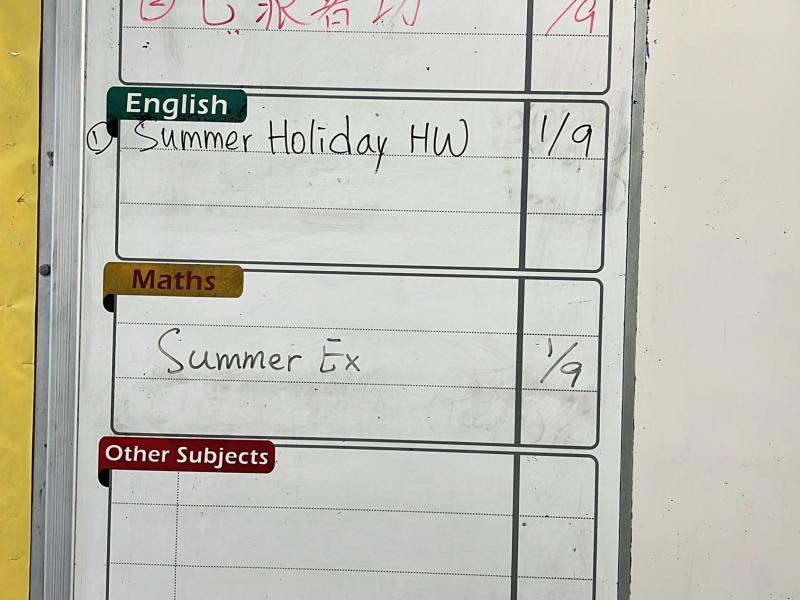 ②
/9
English
① Summer Holiday HW 1/9
Maths
Summer Ex 1/9
Other Subjects